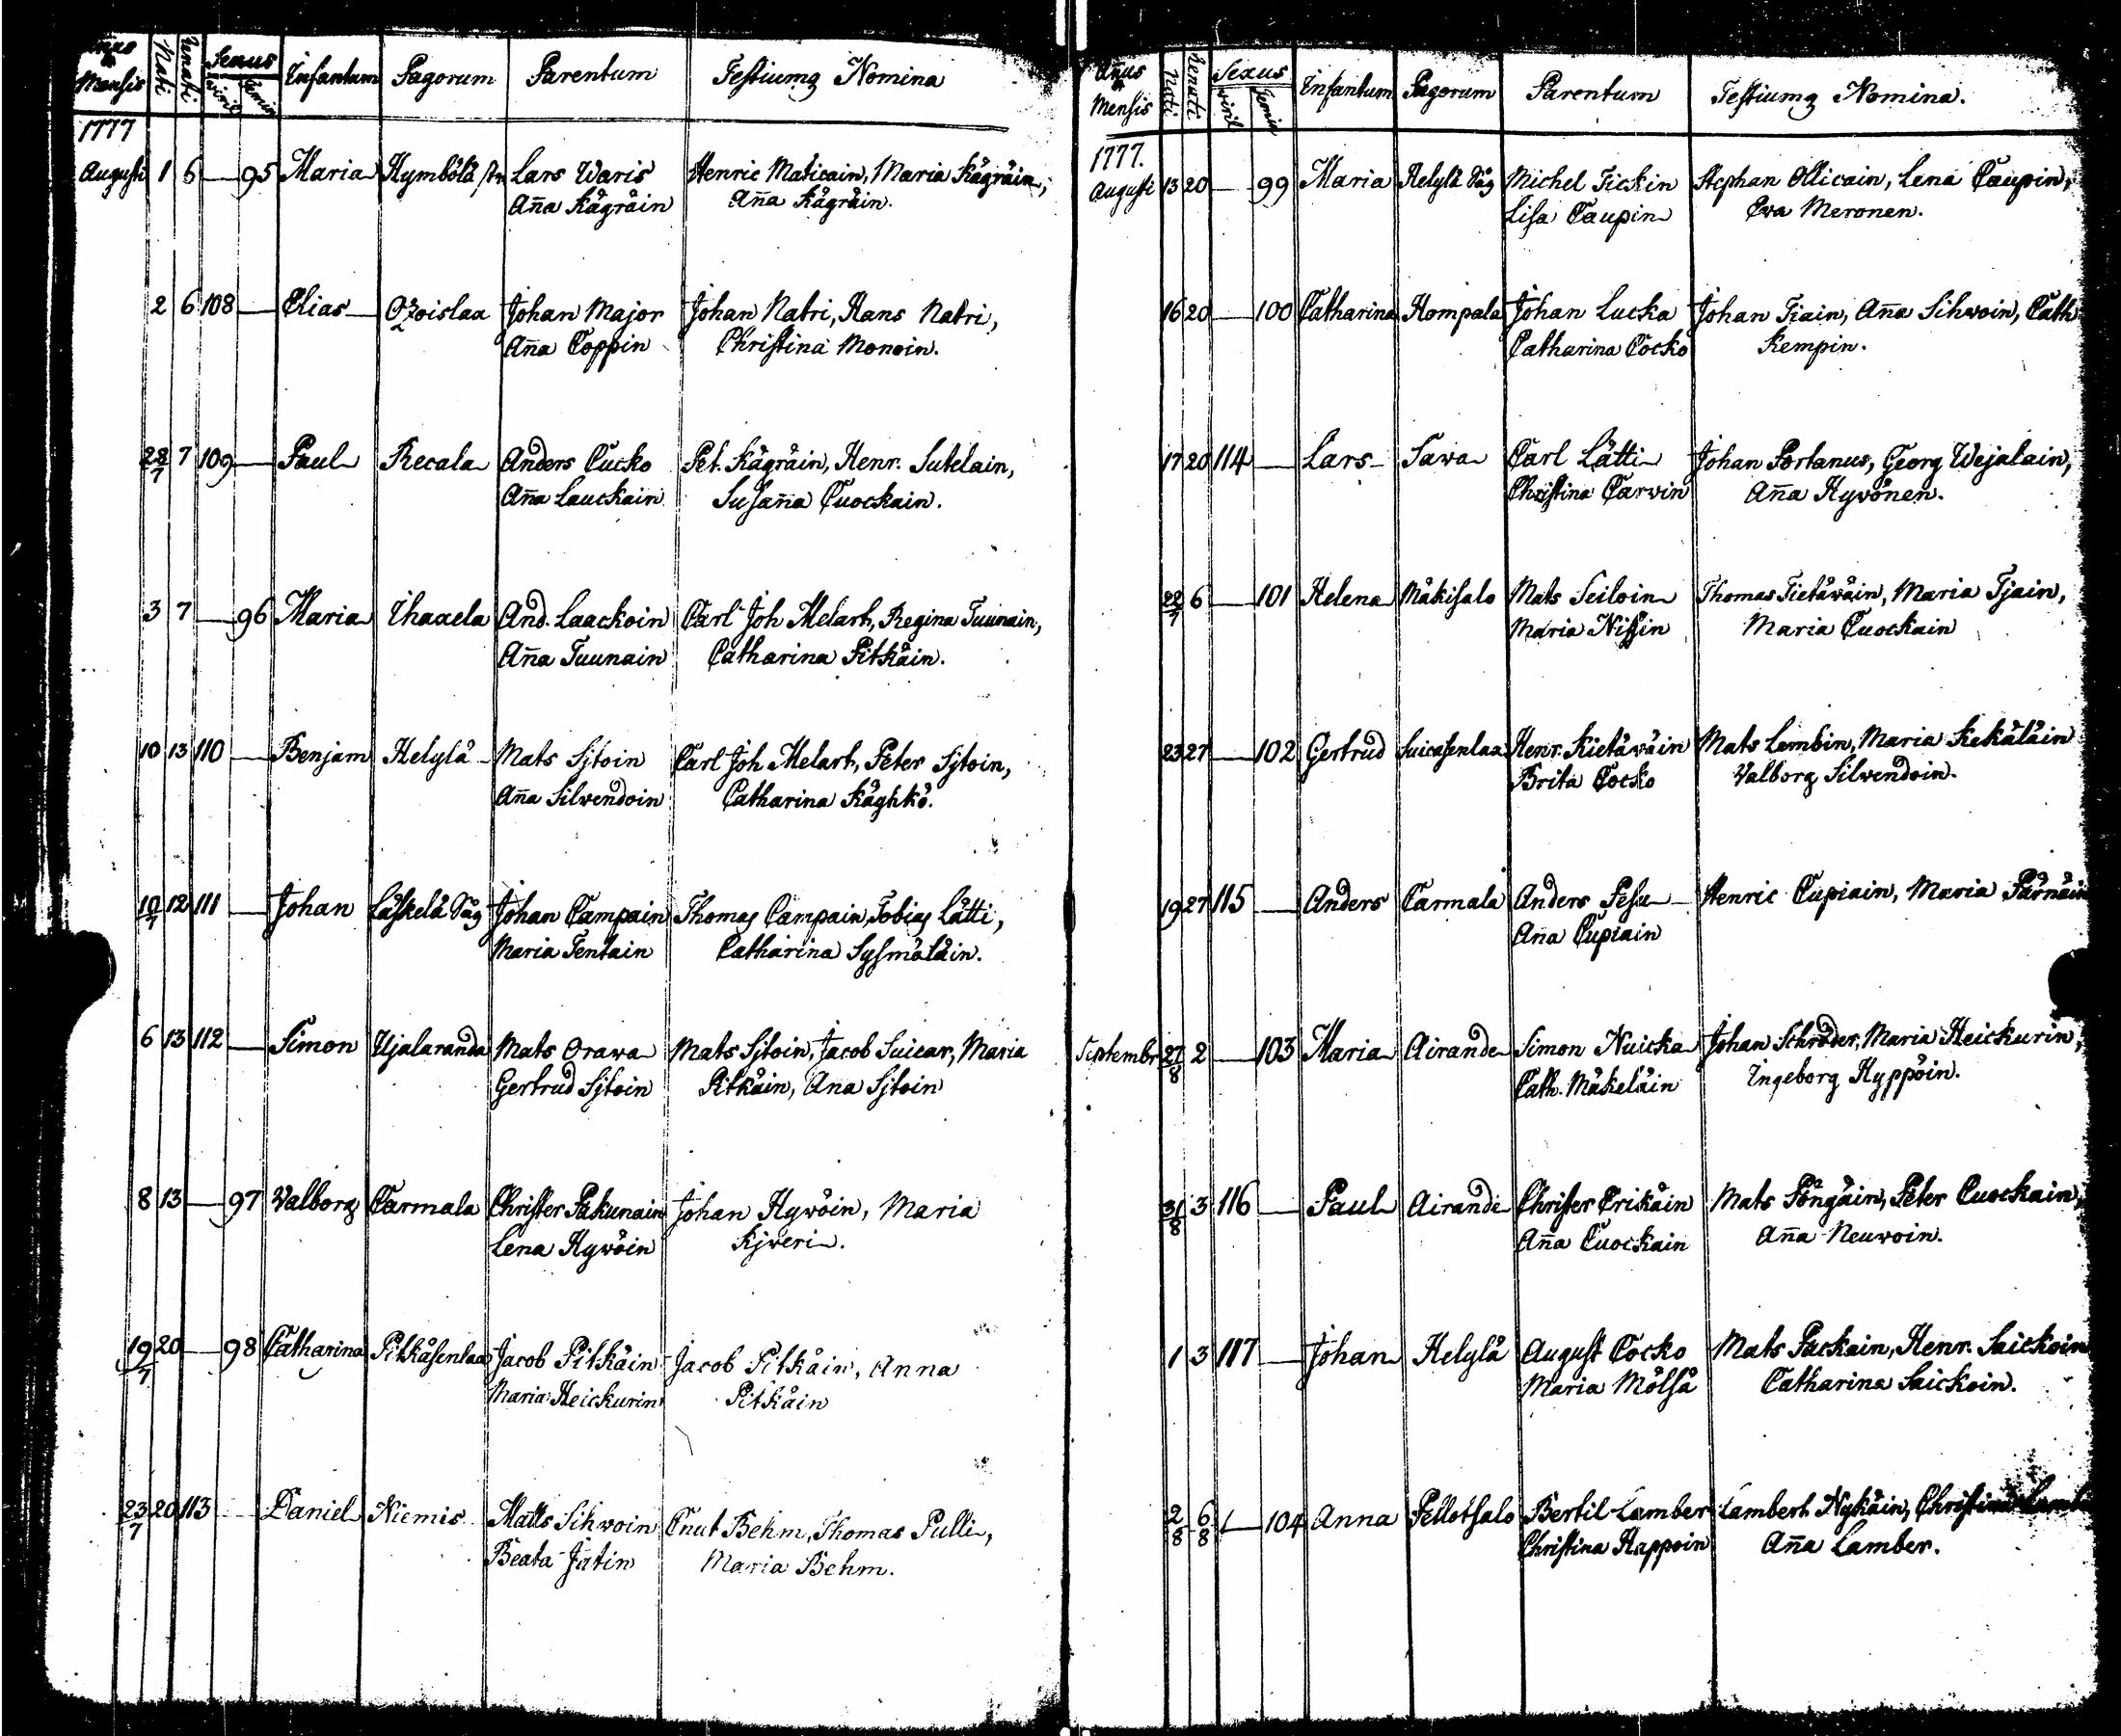 Annus & Mensis Nati Renati Sexus viril Femin Infantum Pagorum Parentum Testiumq Nomina
1777
Augusti 1 6 — 95 Maria Kymbölä Lars Waris Henric Maticain, Maria Kägräin,
Aña Kägräin Aña Kägräin.
2 6 108 — Elias Otzoislax Johan Major Johan Natri, Hans Natri,
Aña Coppin Christina Monoin.
28/7 7 109 — Paul Recala Anders Cucko Pet. Kägräin, Henr. Sutelain,
Aña Lauckain Susaña Cuockain.
3 7 — 96 Maria Ihaxela And. Laackoin Carl Joh Melart, Regina Tuunain,
Aña Tuunain Catharina Pitkäin.
10 13 110 — Benjam Helylä Mats Sjtoin Carl Joh Melart, Peter Sjtoin,
Aña Silvendoin Catharina Käghkö.
19/7 12 111 — Johan Läskelä Såg Johan Campain Thomas Campain, Tobias Lätti,
Maria Tentain Catharina Sysmäläin.
6 13 112 — Simon Ujalaranda Mats Orawa Mats Sjtoin, Jacob Suicar, Maria
Gertrud Sjtoin Pitkäin, Ana Sjtoin
8 13 — 97 Valborg Carmala Christer Pakunain Johan Hywöin, Maria
Lena Hywöin Kjweri.
19/7 20 — 98 Catharina Pitkäsenlax Jacob Pitkäin Jacob Pitkäin, Anna
Maria Heickurin Pitkäin
23/7 20 113 Daniel Niemis Matts Sihwoin Cnut Behm, Thomas Pulli,
Beata Jätin Maria Behm.
Añus & Mensis Nati Renati Sexus viril Femin Infantum Pagorum Parentum Testiumq Nomina.
1777.
Augusti 13 20 — 99 Maria Helylä Såg Michel Tickin Stephan Ollicain, Lena Caupin,
Lisa Caupin Eva Meronen.
16 20 — 100 Catharina Hompala Johan Lucka Johan Tiain, Aña Sihwoin, Cath
Catharina Cocko Kempin.
17 20 114 — Lars Sawa Carl Lätti Johan Portanus, Georg Wejalain,
Christina Carvin Aña Hyvönen.
22/7 6 — 101 Helena Mäkisalo Mats Seiloin Thomas Tietäwäin, Maria Tjain,
Maria Nissin Maria Cuockain
23 27 — 102 Gertrud Suicasenlax Henr. Kietäwäin Mats Lembin, Maria Kekäläin
Brita Cocko Valborg Silvendoin.
19 27 115 — Anders Carmala Anders Pesu Henric Cupiain, Maria Pärnäin
Ana Cupiain
Septembr 27/8 2 — 103 Maria Airande Simon Nuicka Johan Schröder, Maria Heickurin,
Cath. Mäkeläin Ingeborg Hyppöin.
31/8 3 116 — Paul Airande Christer Erikäin Mats Pöngäin, Peter Cuockain,
Aña Cuockain Aña Neuvoin.
1 3 117 — Johan Helylä August Cocko Mats Packain, Henr. Saickoin
Maria Mölsä Catharina Saickoin.
2/8 6/8 — 104 Anna Pellotsalo Bertil Lamber Lambert Nykäin, Christina
Christina Happoin Aña Lamber.